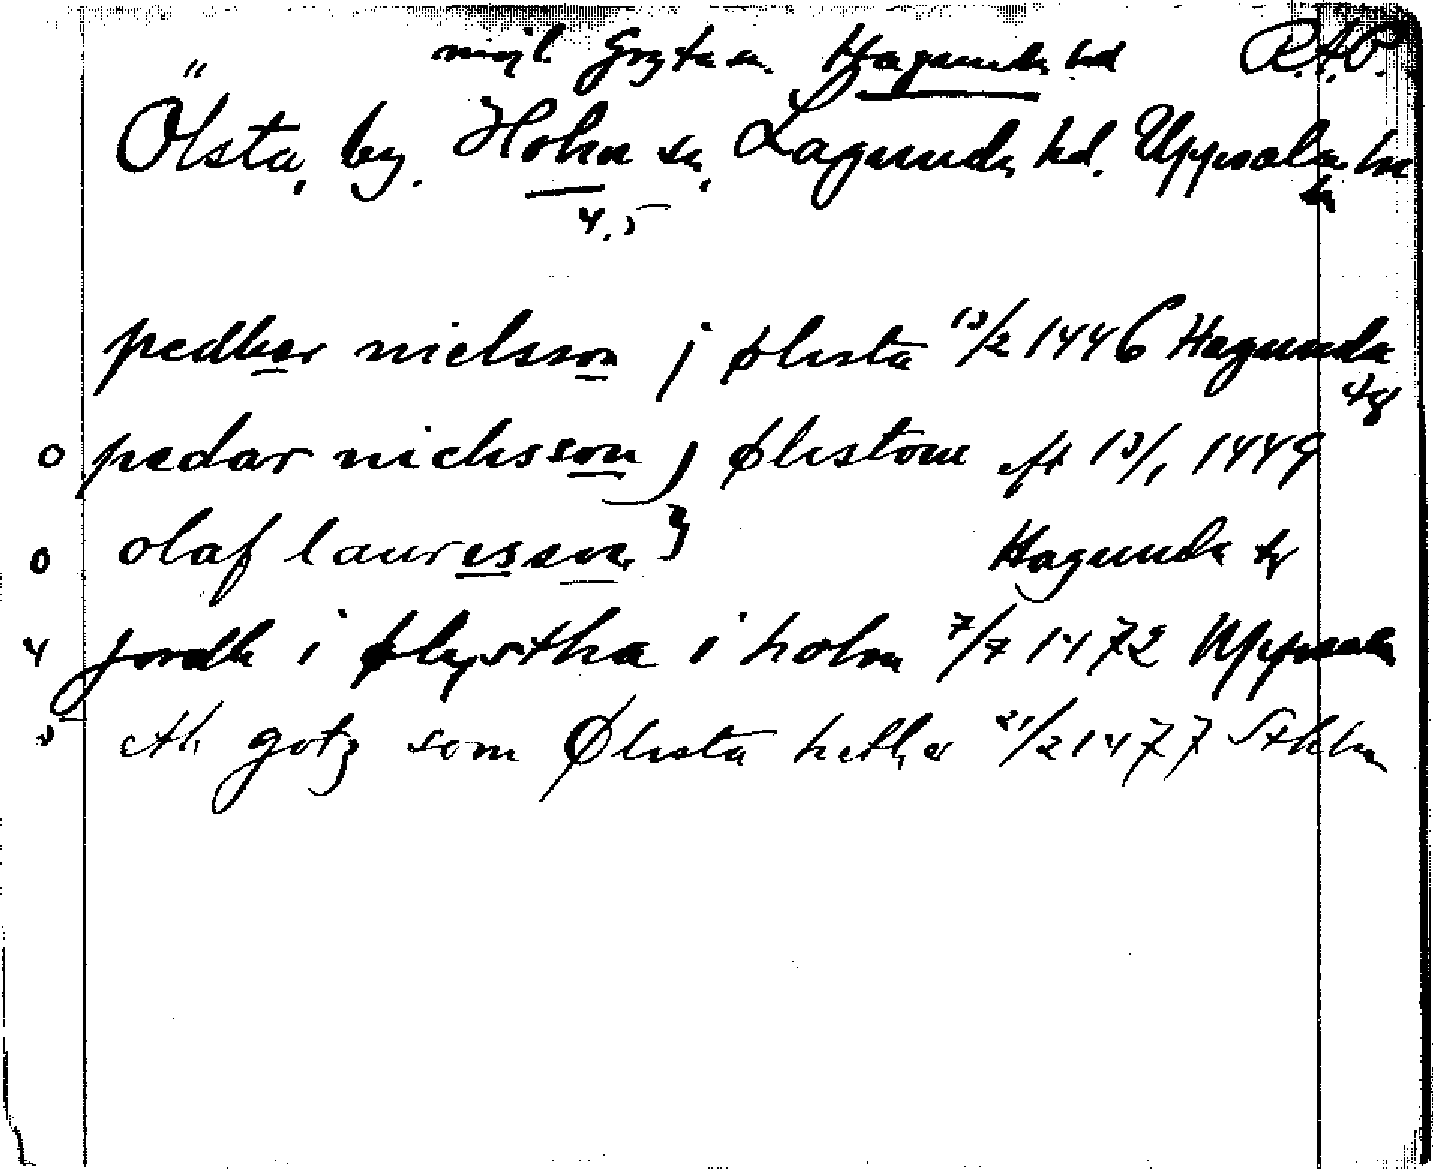 möjl. Gryta sn. Hagunda hd R.A.P.
Ölsta, by. Holm sn, Lagunda hd. Uppsala län
4,5
pedher nielsson j ølista 13/2 1446 Hagunda
o pedar nielisson j Ølistom eft 13/1 1449
o olaf laurisson } Hagunda
4 jordh i ølystha i holm 7/7 1472 Uppsala
5 eth gotz som Ølista hether 21/2 1477 Sthlm